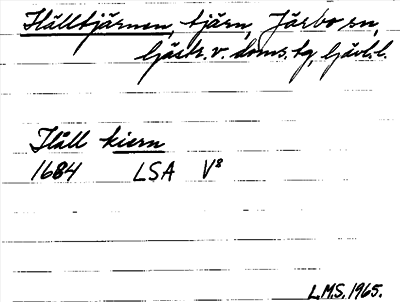 Hälltjärnen, tjärn, Järbo sn,
Gästr. v. doms. tg, Gävl. l.
Häll kiern
1684 LSA V8
L.M.S. 1965.